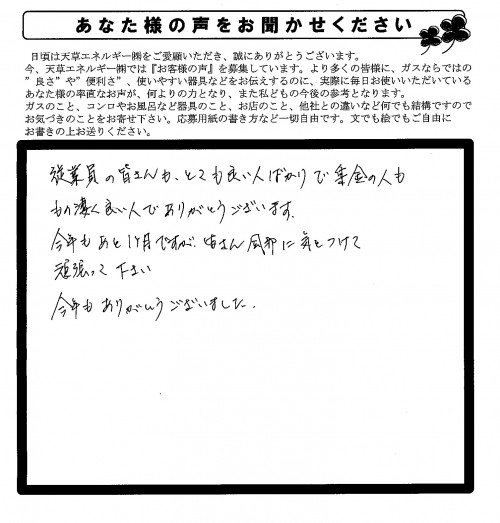 あなた様の声をお聞かせください
日頃は天草エネルギー㈱をご愛顧いただき、誠にありがとうございます。
今、天草エネルギー㈱では『お客様の声』を募集しています。より多くの皆様に、ガスならではの
”良さ”や”便利さ”、使いやすい器具などをお伝えするのに、実際に毎日お使いいただいている
あなた様の率直なお声が、何よりの力となり、また私どもの今後の参考となります。
ガスのこと、コンロやお風呂など器具のこと、お店のこと、他社との違いなど何でも結構ですので
お気づきのことをお寄せ下さい。応募用紙の書き方など一切自由です。文でも絵でもご自由に
お書きの上お送りください。
従業員の皆さんも、とても良い人ばかりで集金の人も
もの凄く良い人でありがとうございます。
今年もあと1ヶ月ですが、皆さん風邪に気をつけて
頑張って下さい
今年もありがとうございました。